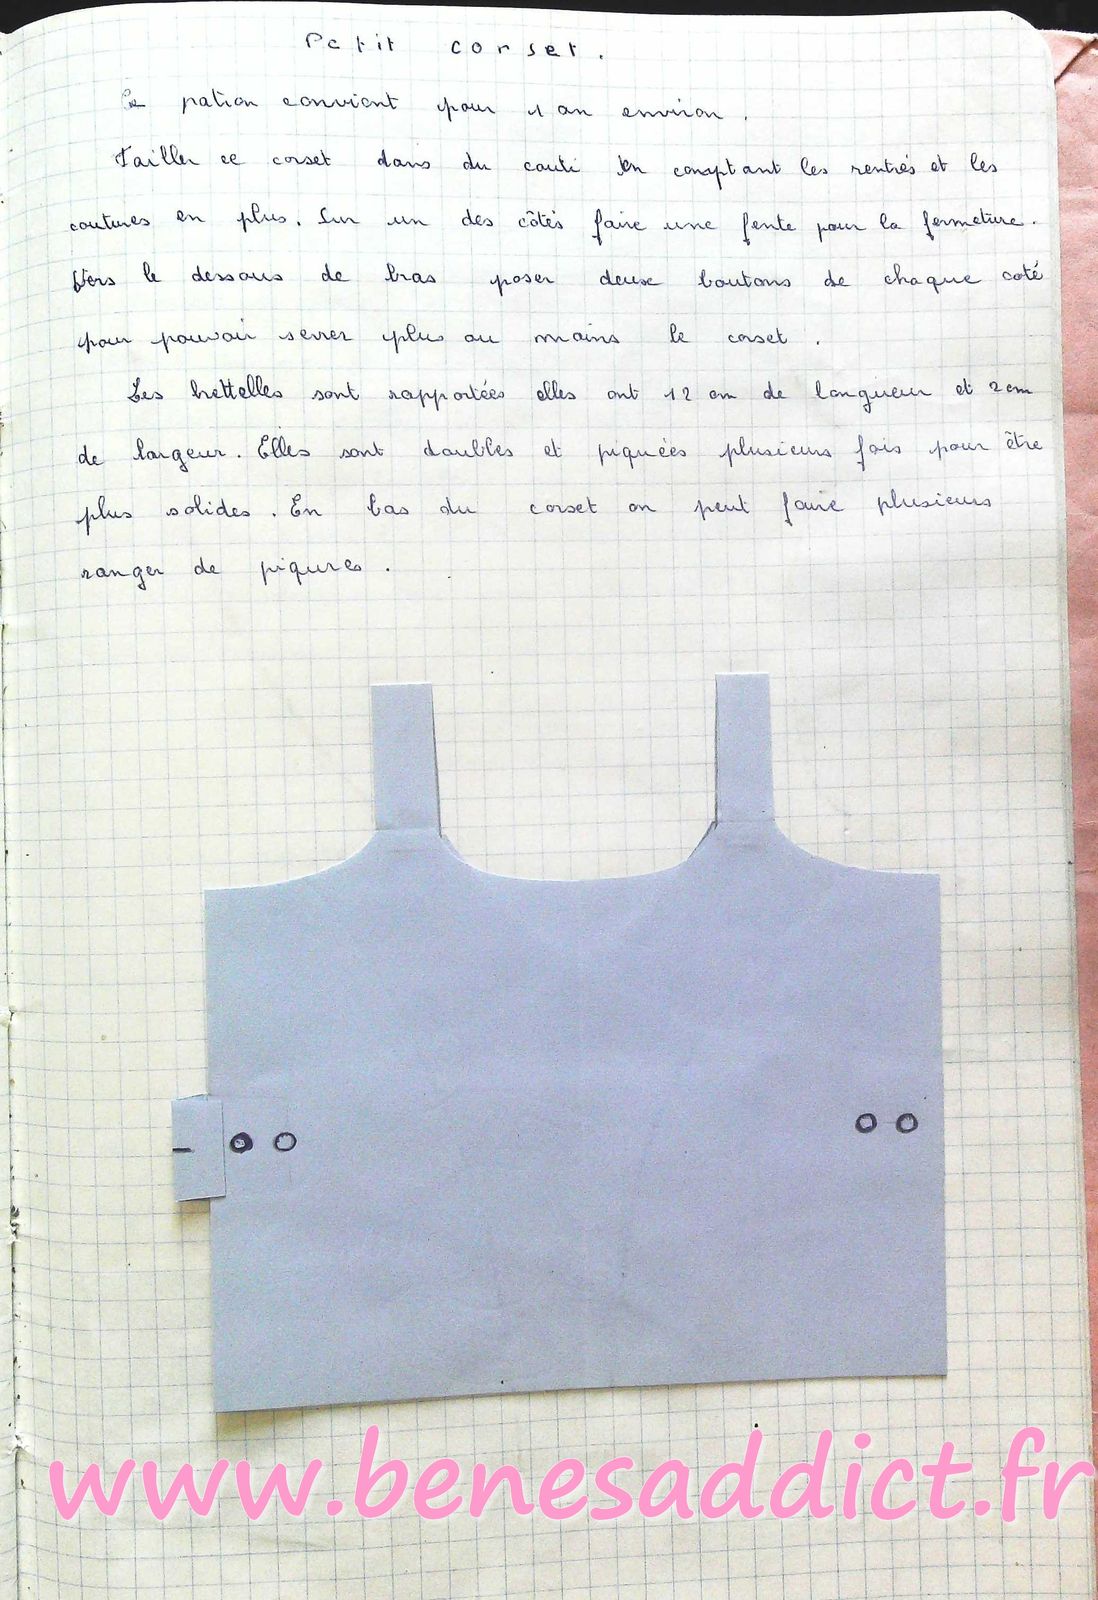 Petit corset.
Ce patron convient pour 1 an environ.
Tailler ce corset dans du couti en comptant les rentrés et les
coutures en plus. Sur un des côtés faire une fente pour la fermeture.
Vers le dessous de bras poser deux boutons de chaque coté
pour pouvoir serrer plus ou moins le corset.
Les brettelles sont rapportées elles ont 12 cm de longueur et 2cm
de largeur. Elles sont doubles et piquées plusieurs fois pour être
plus solides. En bas du corset on peut faire plusieurs
ranger de piqures.
www.benesaddict.fr